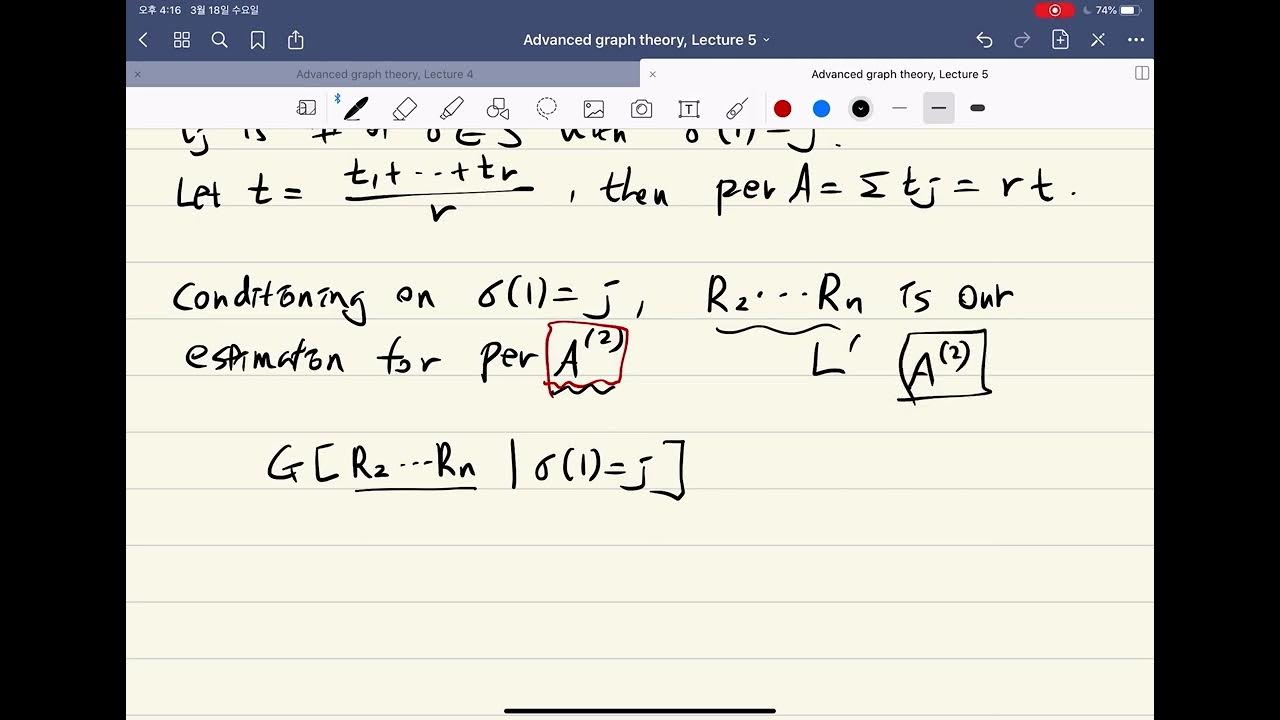 오후 4:16 3월 18일 수요일
74%
Advanced graph theory, Lecture 5
Advanced graph theory, Lecture 4
Advanced graph theory, Lecture 5
tj is # of σ ∈ S with σ(1) = j.
Let t = (t₁ + ··· + tr)/r , then per A = Σ tj = r t .
Conditoning on σ(1) = j, R₂ ··· Rn is our
estimaton for per A⁽²⁾ L′ A⁽²⁾
G[R₂ ··· Rn | σ(1) = j]